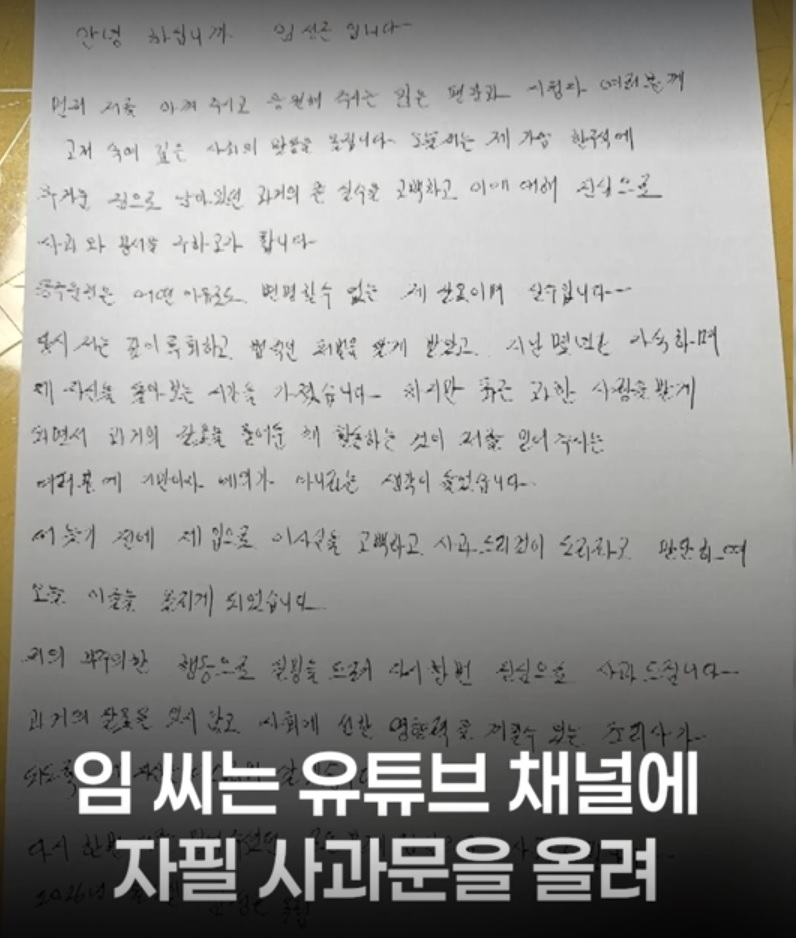 안녕 하십니까. 임성근 입니다
먼저 저를 아껴 주시고 응원해 주시는 많은 팬분과 시청자 여러분께
고개 숙여 깊은 사죄의 말씀을 올립니다. 오늘 저는 제 가슴 한구석에
무거운 짐으로 남아있던 과거의 큰 실수를 고백하고 이에 대해 진심으로
사죄와 용서를 구하고자 합니다
음주운전은 어떤 이유로도 변명할수 없는 제 잘못이며 실수입니다
당시 저는 깊이 후회하고 법적인 처벌을 받게 받았고. 지난 몇년간 자숙하며
제 자신을 돌아 보는 시간을 가졌습니다 하지만 최근 과한 사랑을 받게
되면서 과거의 잘못을 묻어둔 채 활동하는 것이 저를 믿어 주시는
여러분에 기만이자 예의가 아니라는 생각이 들었습니다
더 늦기 전에 제 입으로 이사실을 고백하고 사과 드리것이 도리라고 판단하여
오늘 이글을 올리게 되었습니다
저의 부주의한 행동으로 실망을 드려 다시한번 진심으로 사과드립니다
과거의 잘못을 잊지 않고 사회에 선한 영향력을 끼칠수 있는 조리사가
다시 한번
2026년
임 씨는 유튜브 채널에
자필 사과문을 올려